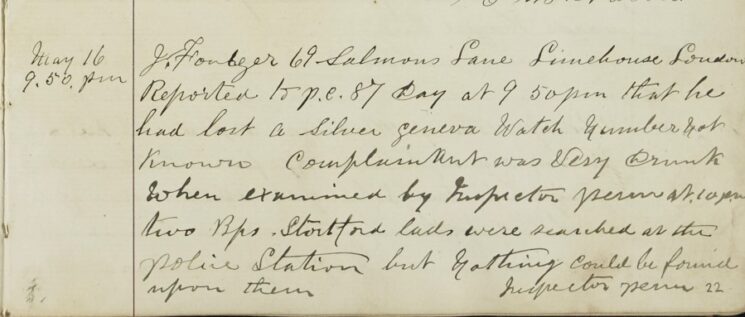 May 16
9.50.pm
J. Foulger 69 Salmons Lane Limehouse London
Reported to p.c. 87 Day at 9 50pm that he
had lost a silver geneva Watch Number Not
Known Complainant was Very Drunk
When examined by Inspector penn at. 10 p.m
two Bps. Stortford lads were searched at the
police Station but Nothing could be found
upon them Inspector penn 22